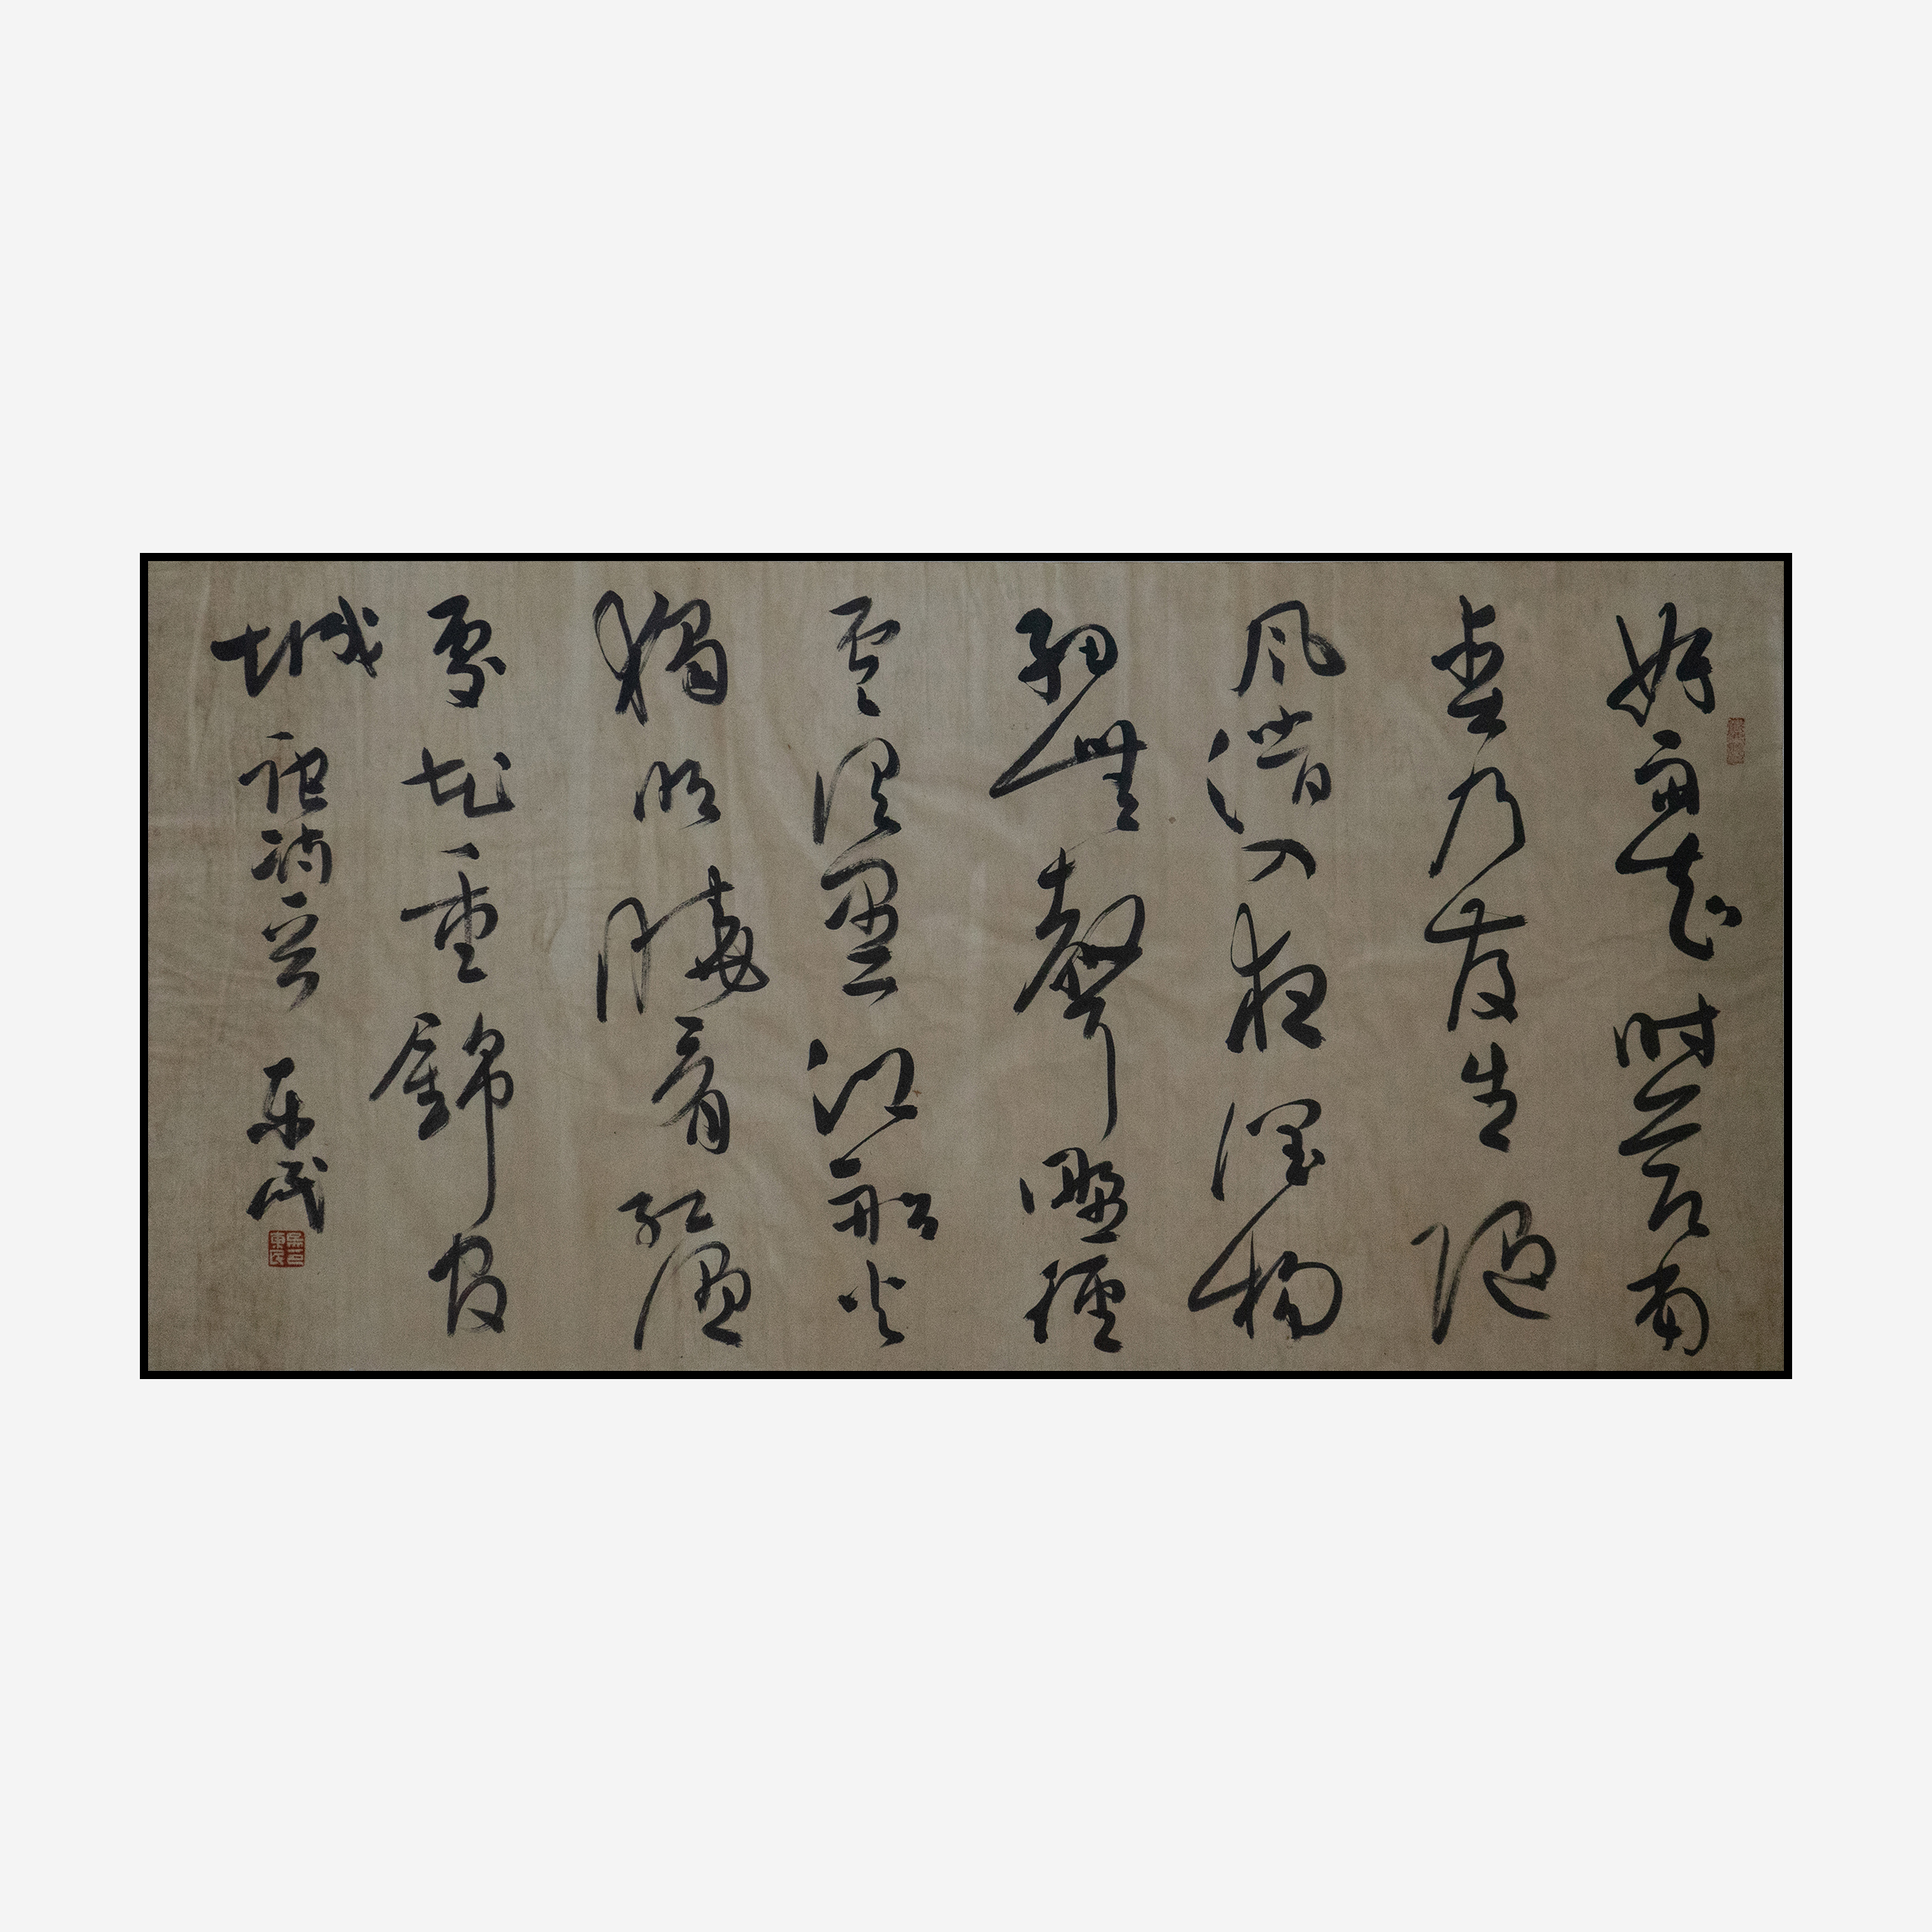 好雨知時節當
春乃發生隨
風潛入夜潤物
細無聲野徑
雲俱黑江船火
獨明曉看紅濕
處花重錦官
城 東民